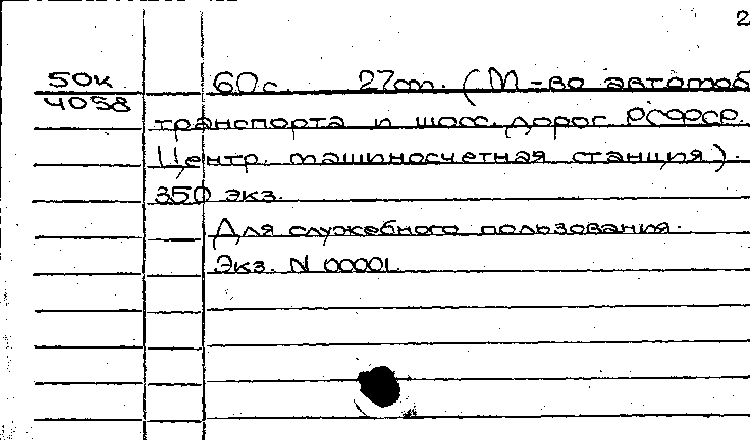 2
50к 60с. 27см. (М-во автомоб
4058
транспорта и шосс. дорог РСФСР.
Центр. машиносчетная станция).
350 экз.
Для служебного пользования.
Экз. N 00001.